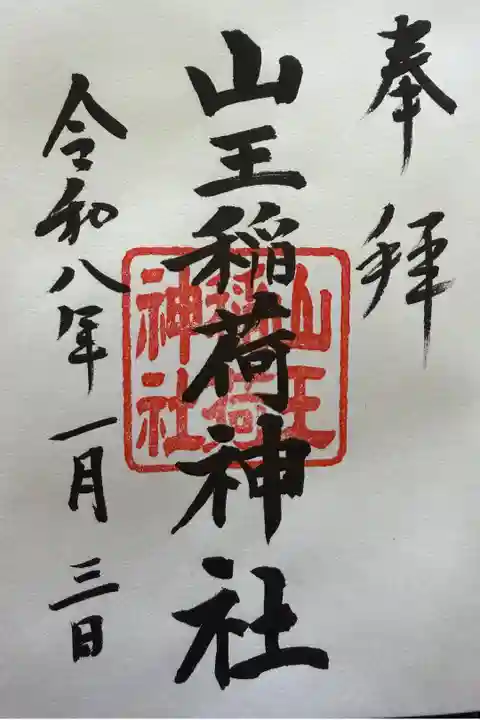 奉拝
山王稲荷神社
山王
稲荷
神社
令和八年一月三日